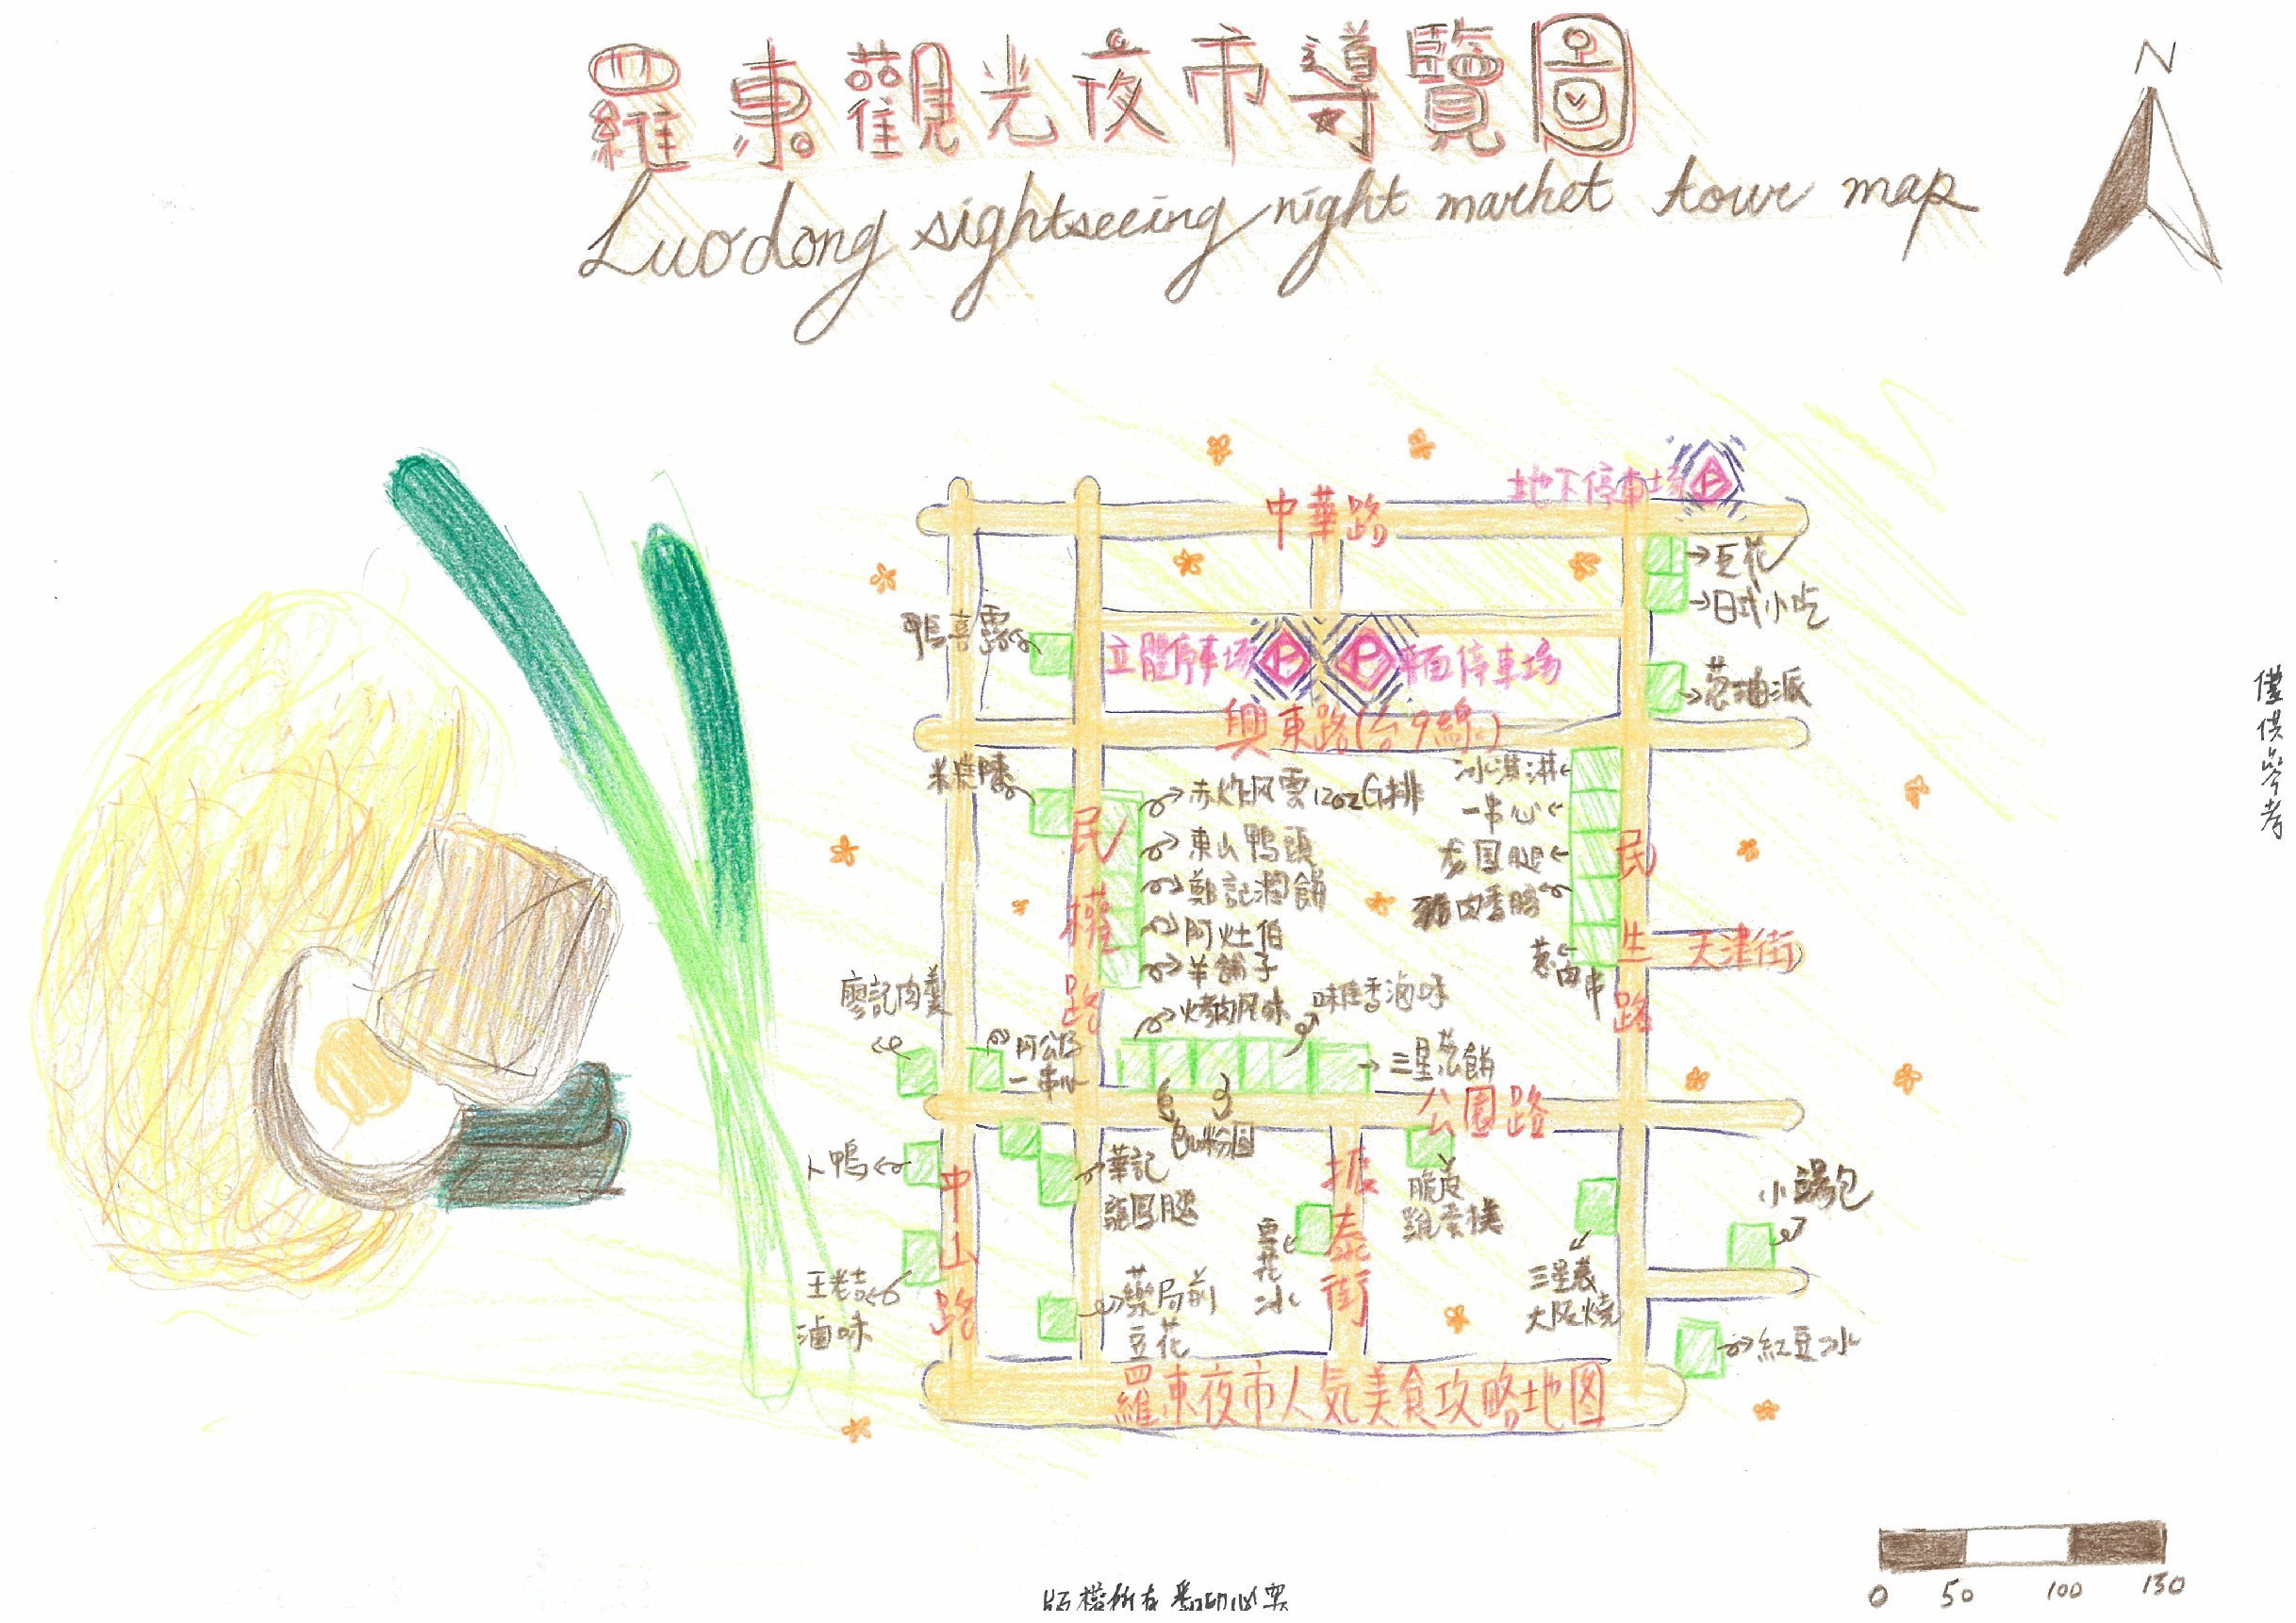 羅東觀光夜市導覽圖
Luodong sightseeing night market tour map
N
地下停車場
P
中華路
豆花
日式小吃
鴨喜露
立體停車場
P
P
平面停車場
蔥油派
興東路(台9線)
僅供參考
冰淇淋
赤炸风雲12ozG排
一串心
民權路
東山鴨頭
民生路
鄭記潤餅
豬肉香腸
阿灶伯
羊舖子
天津街
蔥肉串
廖記肉羹
烤肉风味
味香滷味
阿公仔
一串心
三星蔥餅
公園路
包心粉圓
卜鴨
中山路
華記
龍鳳腿
振泰街
脆皮
雞蛋糕
小湯包
豆花冰
王老吉
滷味
藥局前
豆花
三星蔥
大阪燒
紅豆冰
羅東夜市人気美食攻略地图
0 50 100 150
版權所有 翻印必究